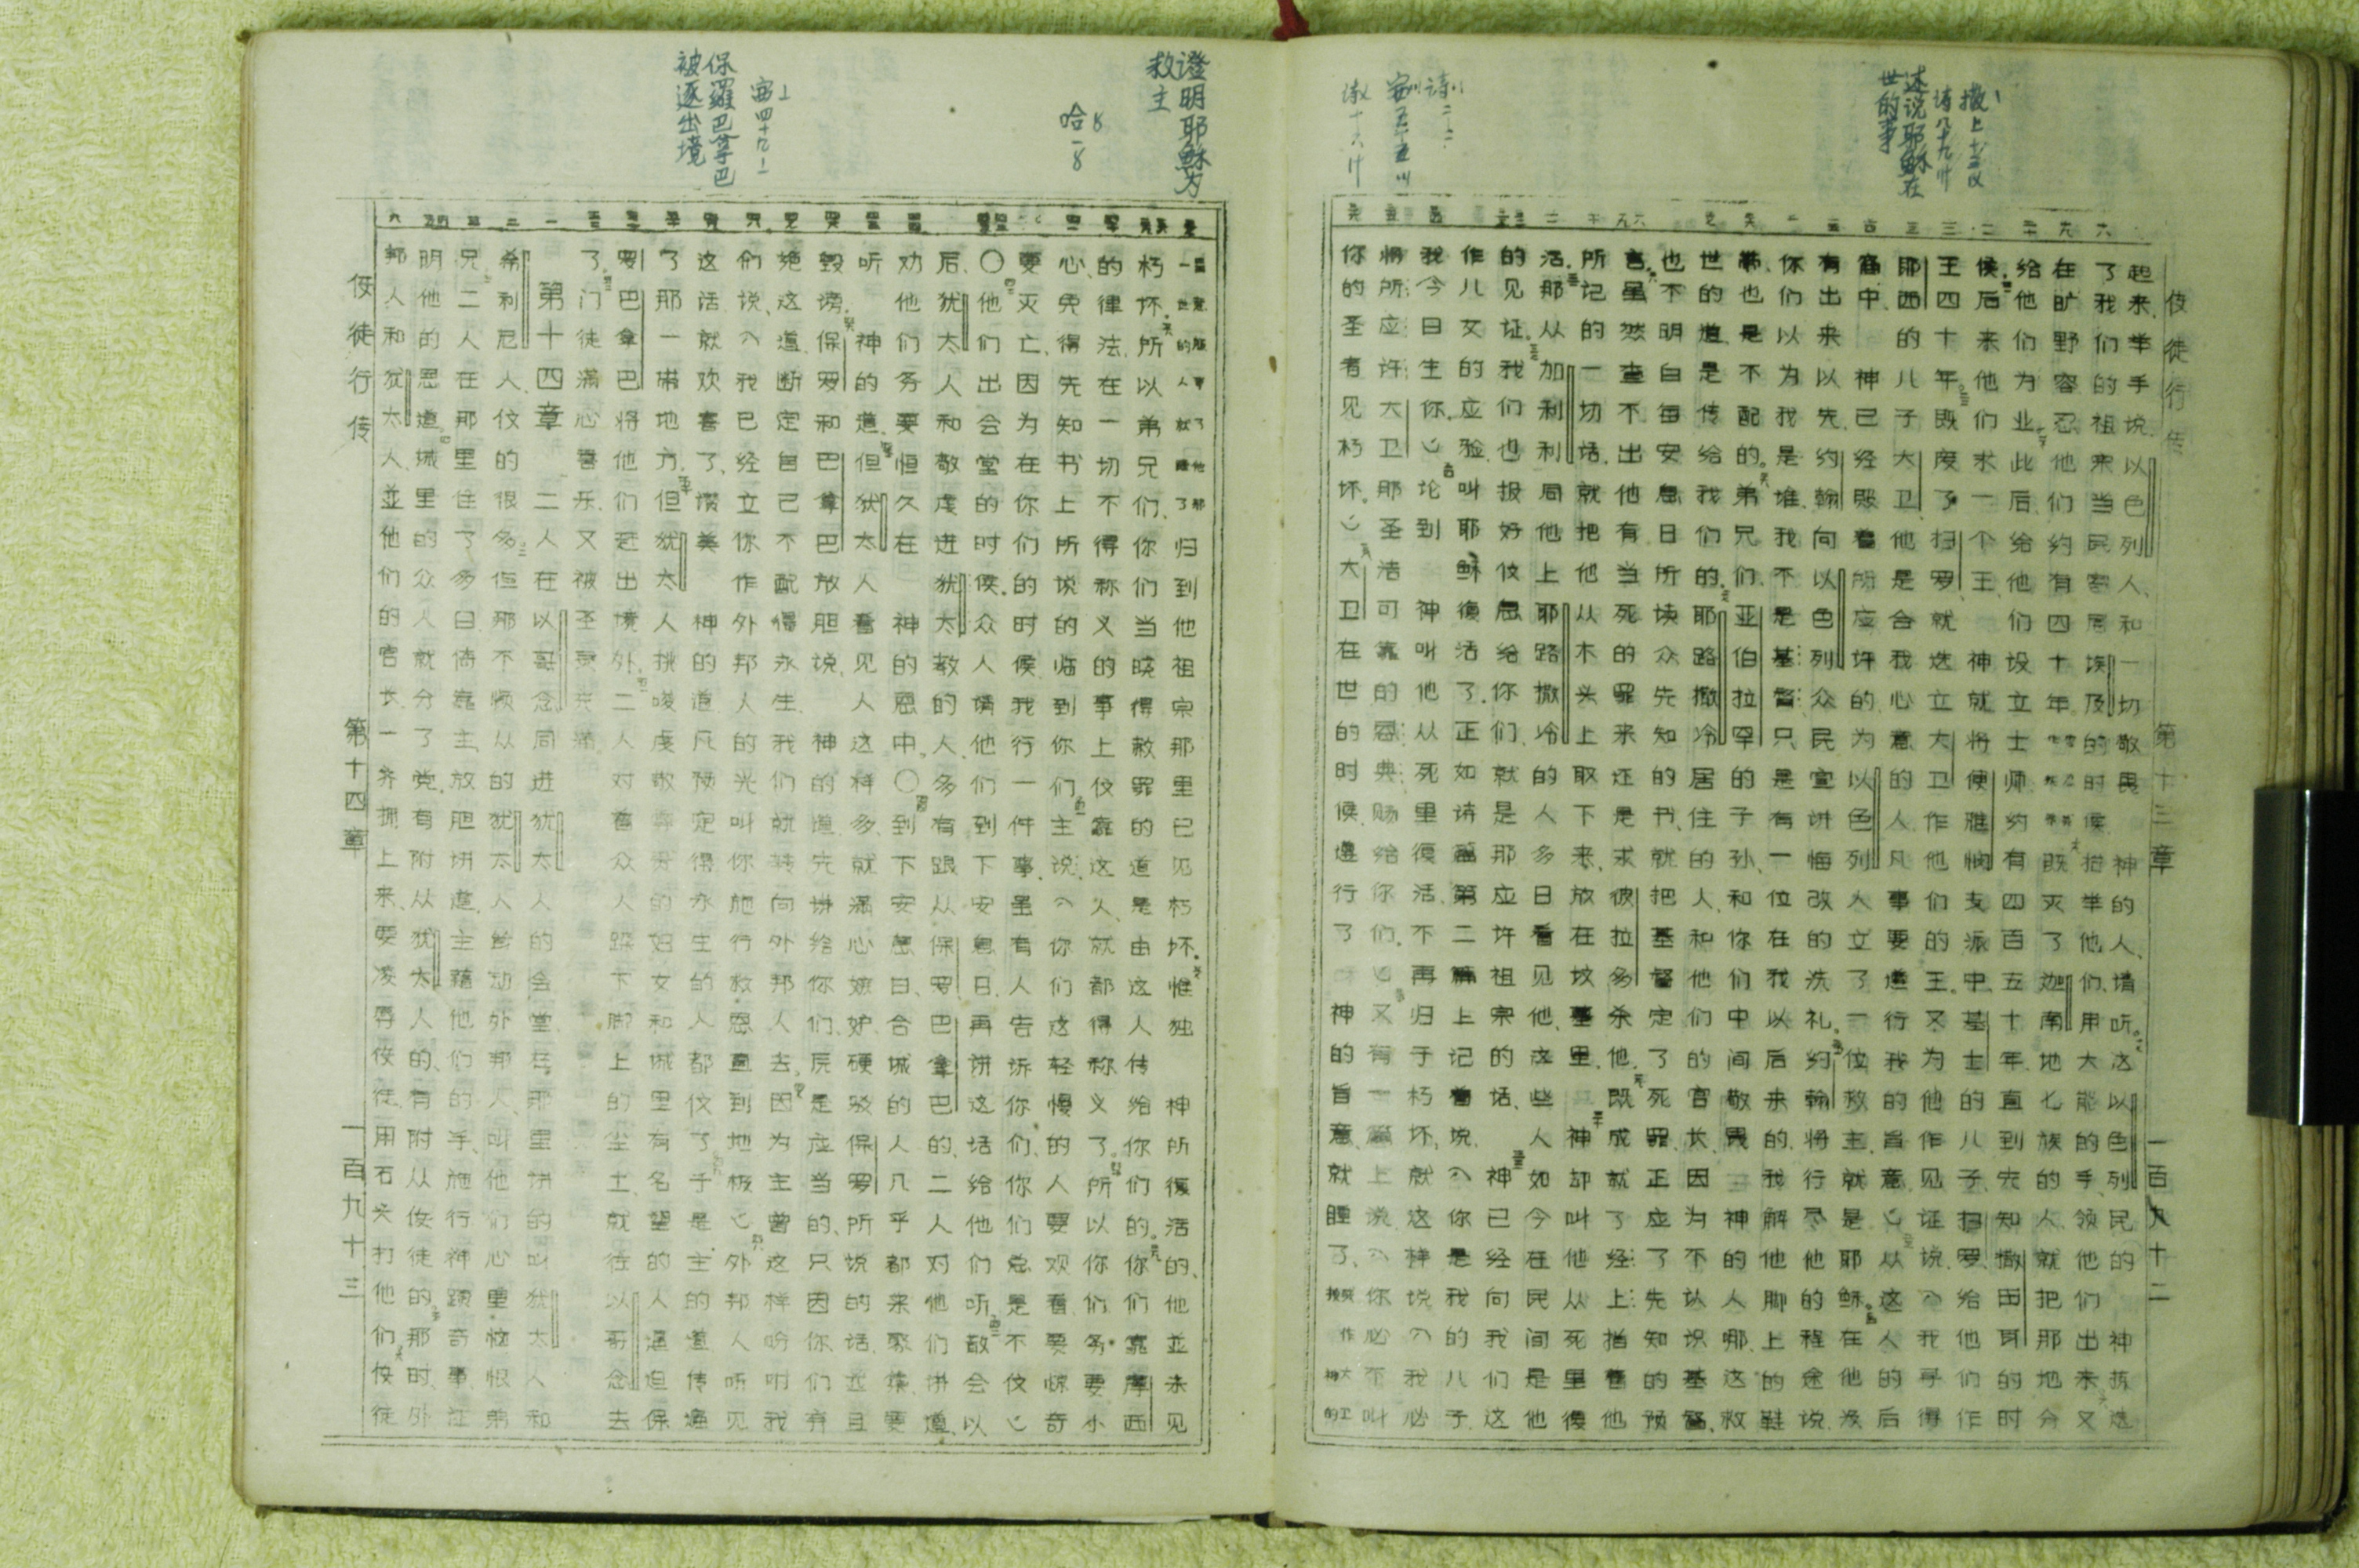 撒上十三
诗八十九
述说耶稣在
世的事
诗二
赛五十五
诗十六
使徒行传 第十三章 一百九十二
起来、举手说、以色列人、和一切敬畏 神的人、请听。这以色列民的 神拣选
了我们的祖宗当民寄居埃及的时候抬举他们、用大能的手领他们出来又
在旷野容忍他们约有四十年既灭了迦南地七族的人就把那地分
给他们为业此后给他们设立士师约有四百五十年直到先知撒母耳的时
候。后来他们求一个王、 神就将便雅悯支派中基士的儿子扫罗给他们作
王四十年。既废了扫罗就选立大卫作他们的王、又为他作见证说、我寻得
耶西的儿子大卫、他是合我心意的人、凡事要遵行我的旨意从这人的后
裔中 神已经照着所应许的为以色列人立了一位救主就是耶稣。在他没
有出来以先、约翰向以色列众民宣讲悔改的洗礼。约翰将行尽他的程途说、
你们以为我是谁、我不是基督只是有一位在我以后来的、我解他脚上的鞋
带、也是不配的。弟兄们、亚伯拉罕的子孙、和你们中间敬畏 神的人哪、这救
世的道是传给我们的。耶路撒冷居住的人、和他们的官长、因为不认识基督、
也不明白每安息日所读众先知的书、就把基督定了死罪、正应了先知的预
言。虽然查不出他有当死的罪来、还是求彼拉多杀他。既成就了经上指着他
所记的一切话、就把他从木头上取下来、放在坟墓里 神却叫他从死里復
活。那从加利利同他上耶路撒冷的人多日看见他、这些人如今在民间是他
的见证。我们也报好信息给你们、就是那应许祖宗的话、 神已经向我们这
作儿女的应验、叫耶稣復活了、正如诗篇第二篇上记着说、你是我的儿子、
我今日生你。论到 神叫他从死里復活、不再归于朽坏、就这样说、我必
将所应许大卫那圣洁可靠的恩典赐给你们。又有一篇上说、你必不叫
你的圣者见朽坏。大卫在世的时候、遵行了 神的旨意就睡了、
證明耶穌为
救主
哈一
赛四十九
保羅巴拿巴
被逐出境
归到他祖宗那里已见朽坏。惟独 神所復活的、他並未见
朽坏。所以弟兄们、你们当晓得赦罪的道是由这人传给你们的。你们靠摩西
的律法、在一切不得称义的事上信靠这人、就都得称义了。所以你们务要小
心、免得先知书上所说的临到你们。主说、你们这轻慢的人要观看要惊奇
要灭亡、因为在你们的时候我行一件事、虽有人告诉你们、你们总是不信
〇他们出会堂的时候、众人请他们到下安息日、再讲这话给他们听。散会以
后、犹太人和敬虔进犹太教的人、多有跟从保罗巴拿巴的、二人对他们讲道、
劝他们务要恒久在 神的恩中。〇到下安息日、合城的人几乎都来聚集要
听 神的道。但犹太人看见人这样多、就满心嫉妒、硬驳保罗所说的话、並且
毁谤。保罗和巴拿巴放胆说、 神的道先讲给你们、原是应当的、只因你们弃
绝这道、断定自己不配得永生、我们就转向外邦人去。因为主曾这样吩咐我
们说、我已经立你作外邦人的光叫你施行救恩直到地极外邦人听见
这话就欢喜了、赞美 神的道凡预定得永生的人都信了于是主的道传遍
了那一带地方。但犹太人挑唆虔敬尊贵的妇女和城里有名望的人逼迫保
罗巴拿巴将他们赶出境外。二人对着众人跺下脚上的尘土就往以哥念去
了。门徒满心喜乐、又被圣灵充满
第十四章 二人在以哥念同进犹太人的会堂在那里讲的叫犹太人和
希利尼人、信的很多。但那不顺从的犹太人耸动外邦人、叫他们心里恼恨弟
兄二人在那里住了多日倚靠主、放胆讲道、主藉他们的手、施行神蹟奇事证
明他的恩道。城里的众人就分了党、有附从犹太人的、有附从使徒的。那时外
邦人和犹太人、並他们的官长一齐拥上来、要凌辱使徒、用石头打他们。使徒
使徒行传 第十四章 一百九十三